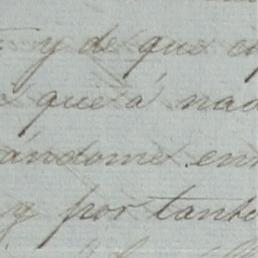 y de que
que á nad
ándome en
y por tanto